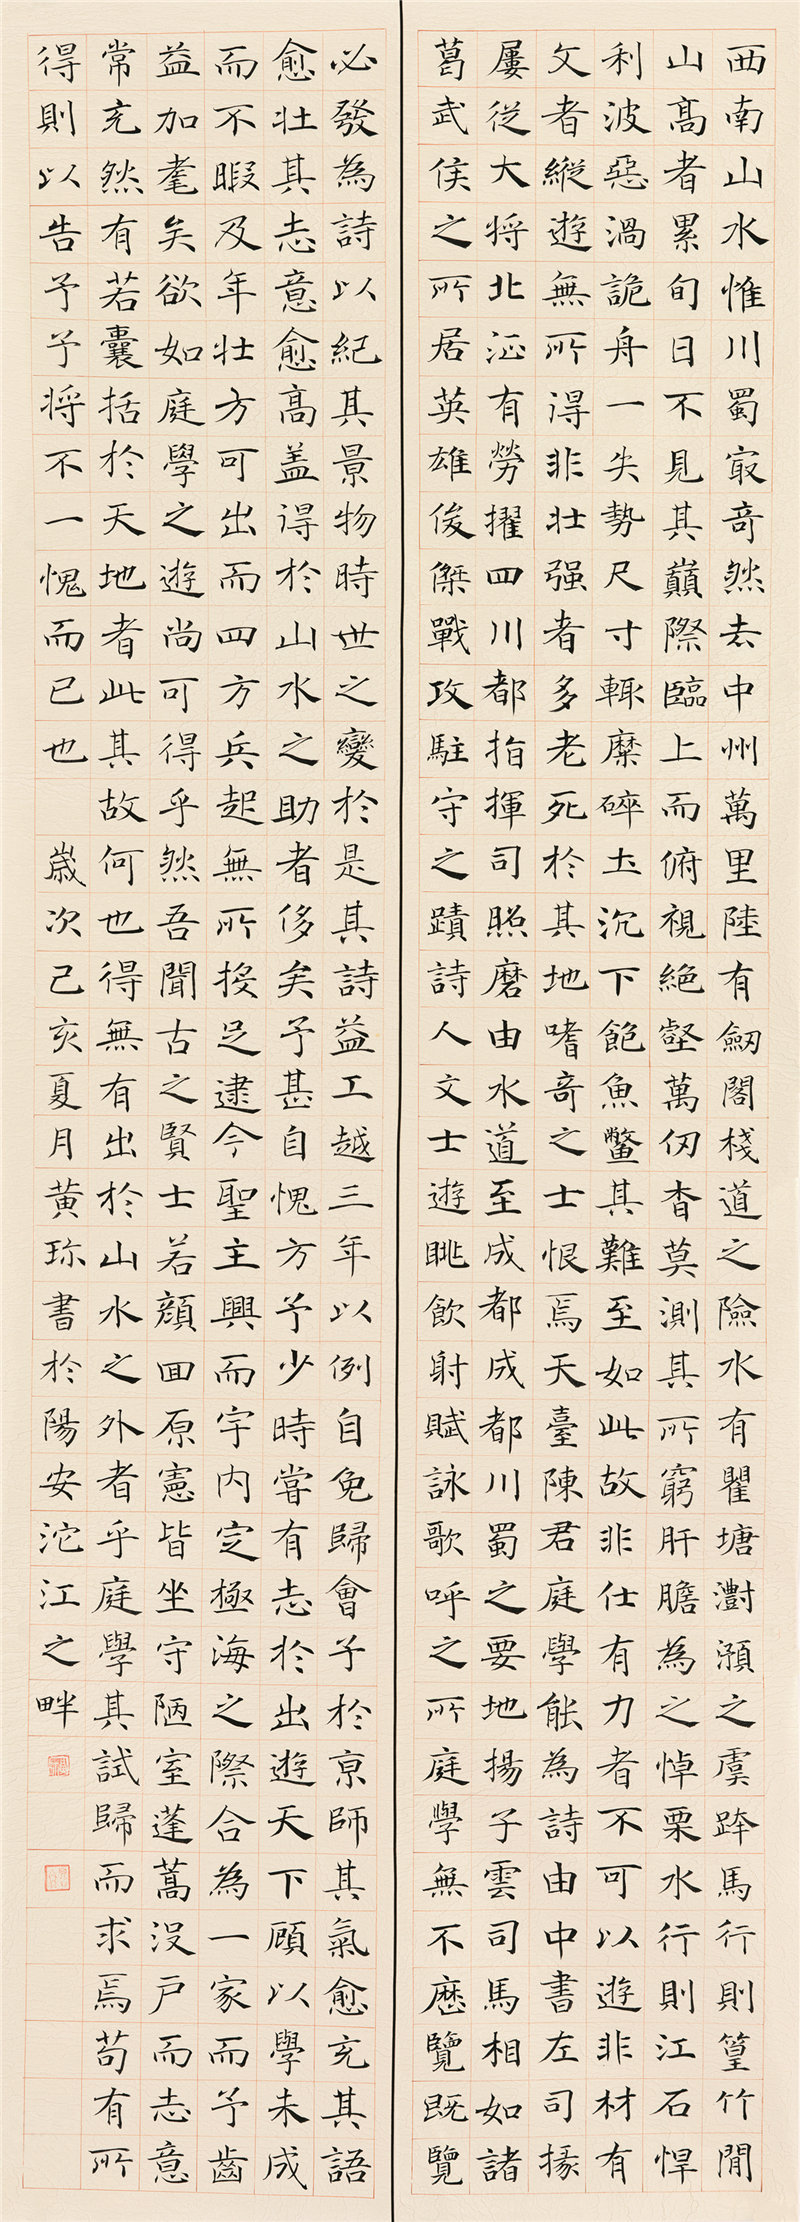 西南山水惟川蜀㝡奇然去中州萬里陸有劒閣棧道之險水有瞿塘灩澦之虞跨馬行則篁竹閒
山高者累旬日不見其巔際臨上而俯視絕壑萬仞杳莫測其所窮肝膽為之悼栗水行則江石悍
利波惡渦詭舟一失勢尺寸輒糜碎土沉下飽魚鱉其難至如此故非仕有力者不可以遊非材有
文者縱遊無所得非壯强者多老死於其地嗜奇之士恨焉天臺陳君庭學能為詩由中書左司掾
屢從大將北征有勞擢四川都指揮司照磨由水道至成都成都川蜀之要地揚子雲司馬相如諸
葛武侯之所居英雄俊傑戰攻駐守之蹟詩人文士遊眺飲射賦詠歌呼之所庭學無不歷覽既覽
必發為詩以紀其景物時世之變於是其詩益工越三年以例自免歸會予於京師其氣愈充其語
愈壯其志意愈高蓋得於山水之助者侈矣予甚自愧方予少時嘗有志於出遊天下顧以學未成
而不暇及年壯方可出而四方兵起無所投足逮今聖主興而宇內定極海之際合為一家而予齒
益加耄矣欲如庭學之遊尚可得乎然吾聞古之賢士若顏回原憲皆坐守陋室蓬蒿沒戶而志意
常充然有若囊括於天地者此其故何也得無有出於山水之外者乎庭學其試歸而求焉苟有所
得則以告予予將不一愧而已也 歲次己亥夏月黃珎書於陽安沱江之畔